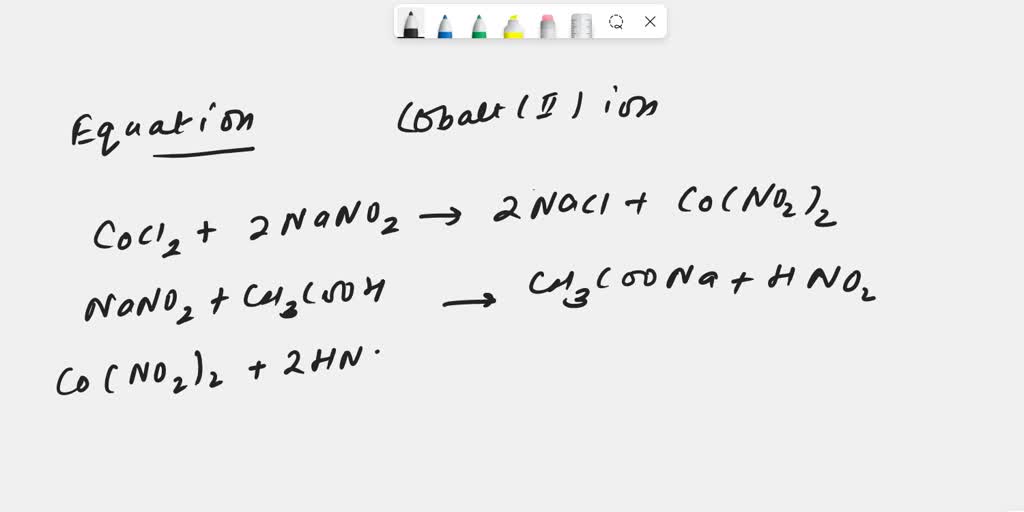 Equation Cobalt (II) ion
CoCl2 + 2NaNO2 → 2NaCl + Co(NO2)2
NaNO2 + CH3COOH → CH3COONa + HNO2
Co(NO2)2 + 2HN